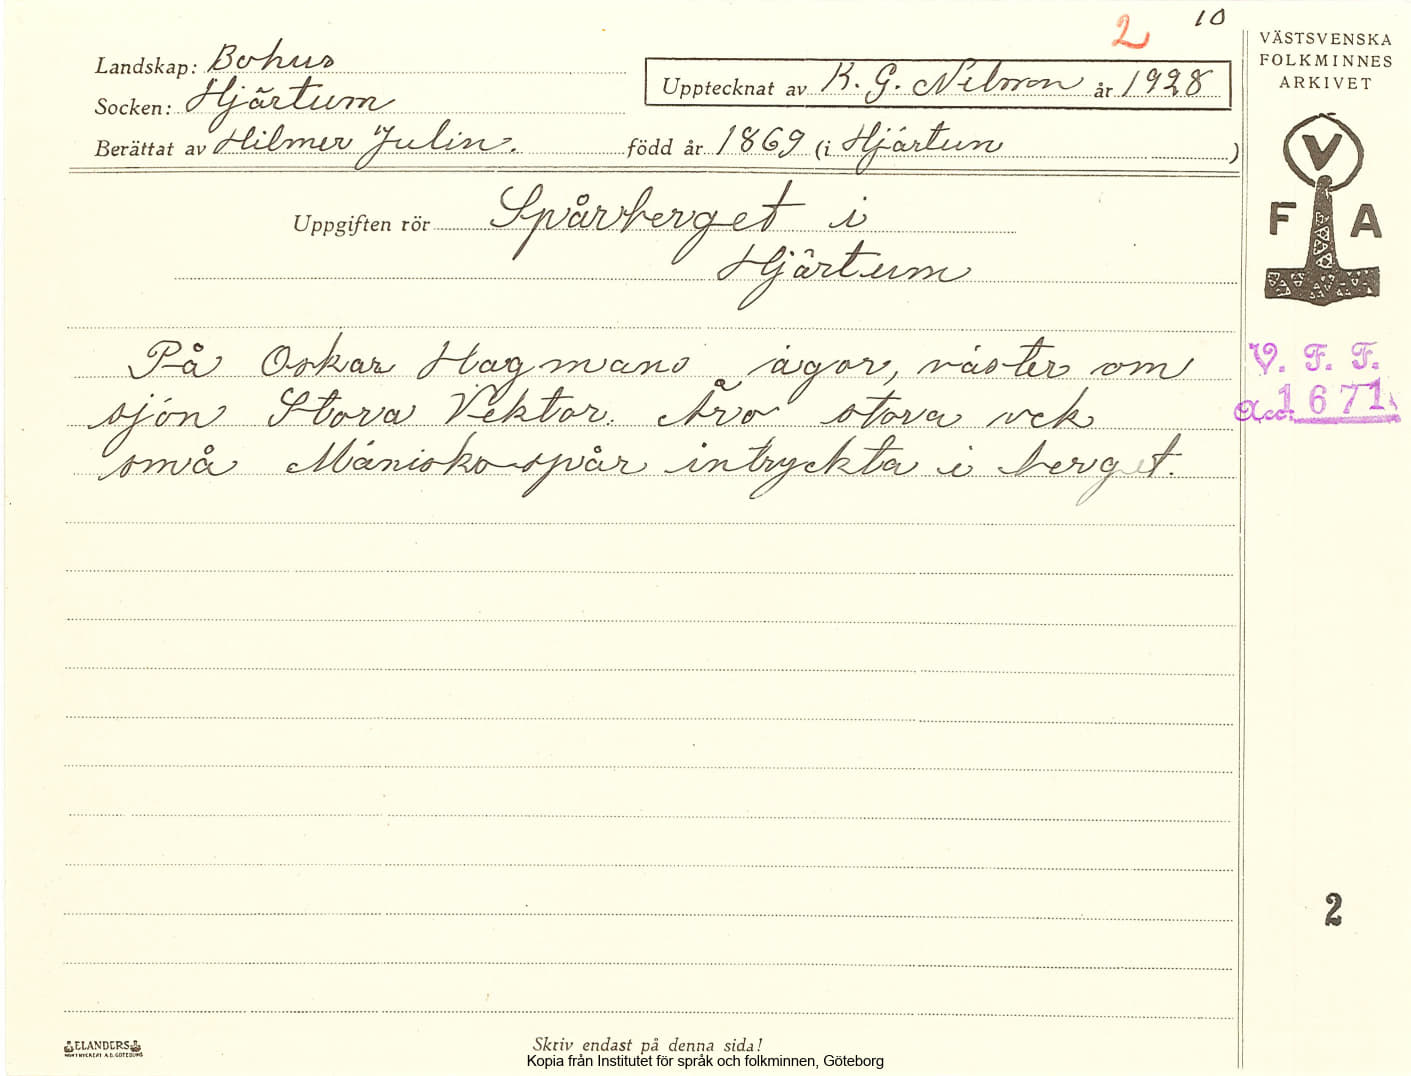 2 10
Landskap: Bohus
Socken: Hjärtum
Upptecknat av K. G. Nilsson år 1928
Berättat av Hilmer Julin. född år 1869 (i Hjärtum )
Uppgiften rör Spårberget i
Hjärtum
På Oskar Hagmans ägor, väster om
sjön Stora Vektor. Äro stora ock
små Mänisko spår intryckta i berget.
VÄSTSVENSKA
FOLKMINNES
ARKIVET
V
F A
V. F. F.
Acc. 1671
2
ELANDERS
Skriv endast på denna sida!
Kopia från Institutet för språk och folkminnen, Göteborg